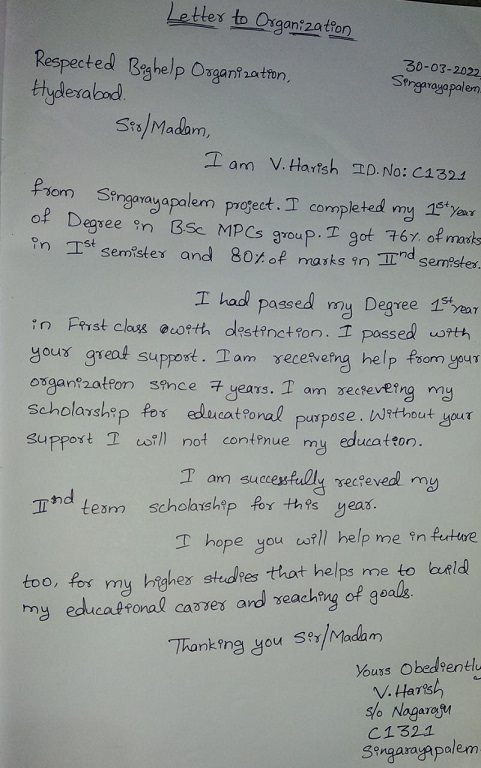 Letter to Organization
Respected Bighelp Organization,
30-03-2022
Singarayapalem
Hyderabad.
Sir/Madam,
I am V. Harish ID.No: C1321
from Singarayapalem project. I completed my 1st year
of Degree in B.Sc MPCs group. I got 76% of marks
in Ist semister and 80% of marks in IInd semister.
I had passed my Degree 1st year
in First class with distinction. I passed with
your great support. I am receiveing help from your
organization since 7 years. I am recieveing my
scholarship for educational purpose. Without your
support I will not continue my education.
I am successfully recieved my
IInd term scholarship for this year.
I hope you will help me in future
too, for my higher studies that helps me to build
my educational carrer and reaching of goals.
Thanking you Sir/Madam
Yours Obediently
V. Harish
s/o Nagaraju
C1321
Singarayapalem